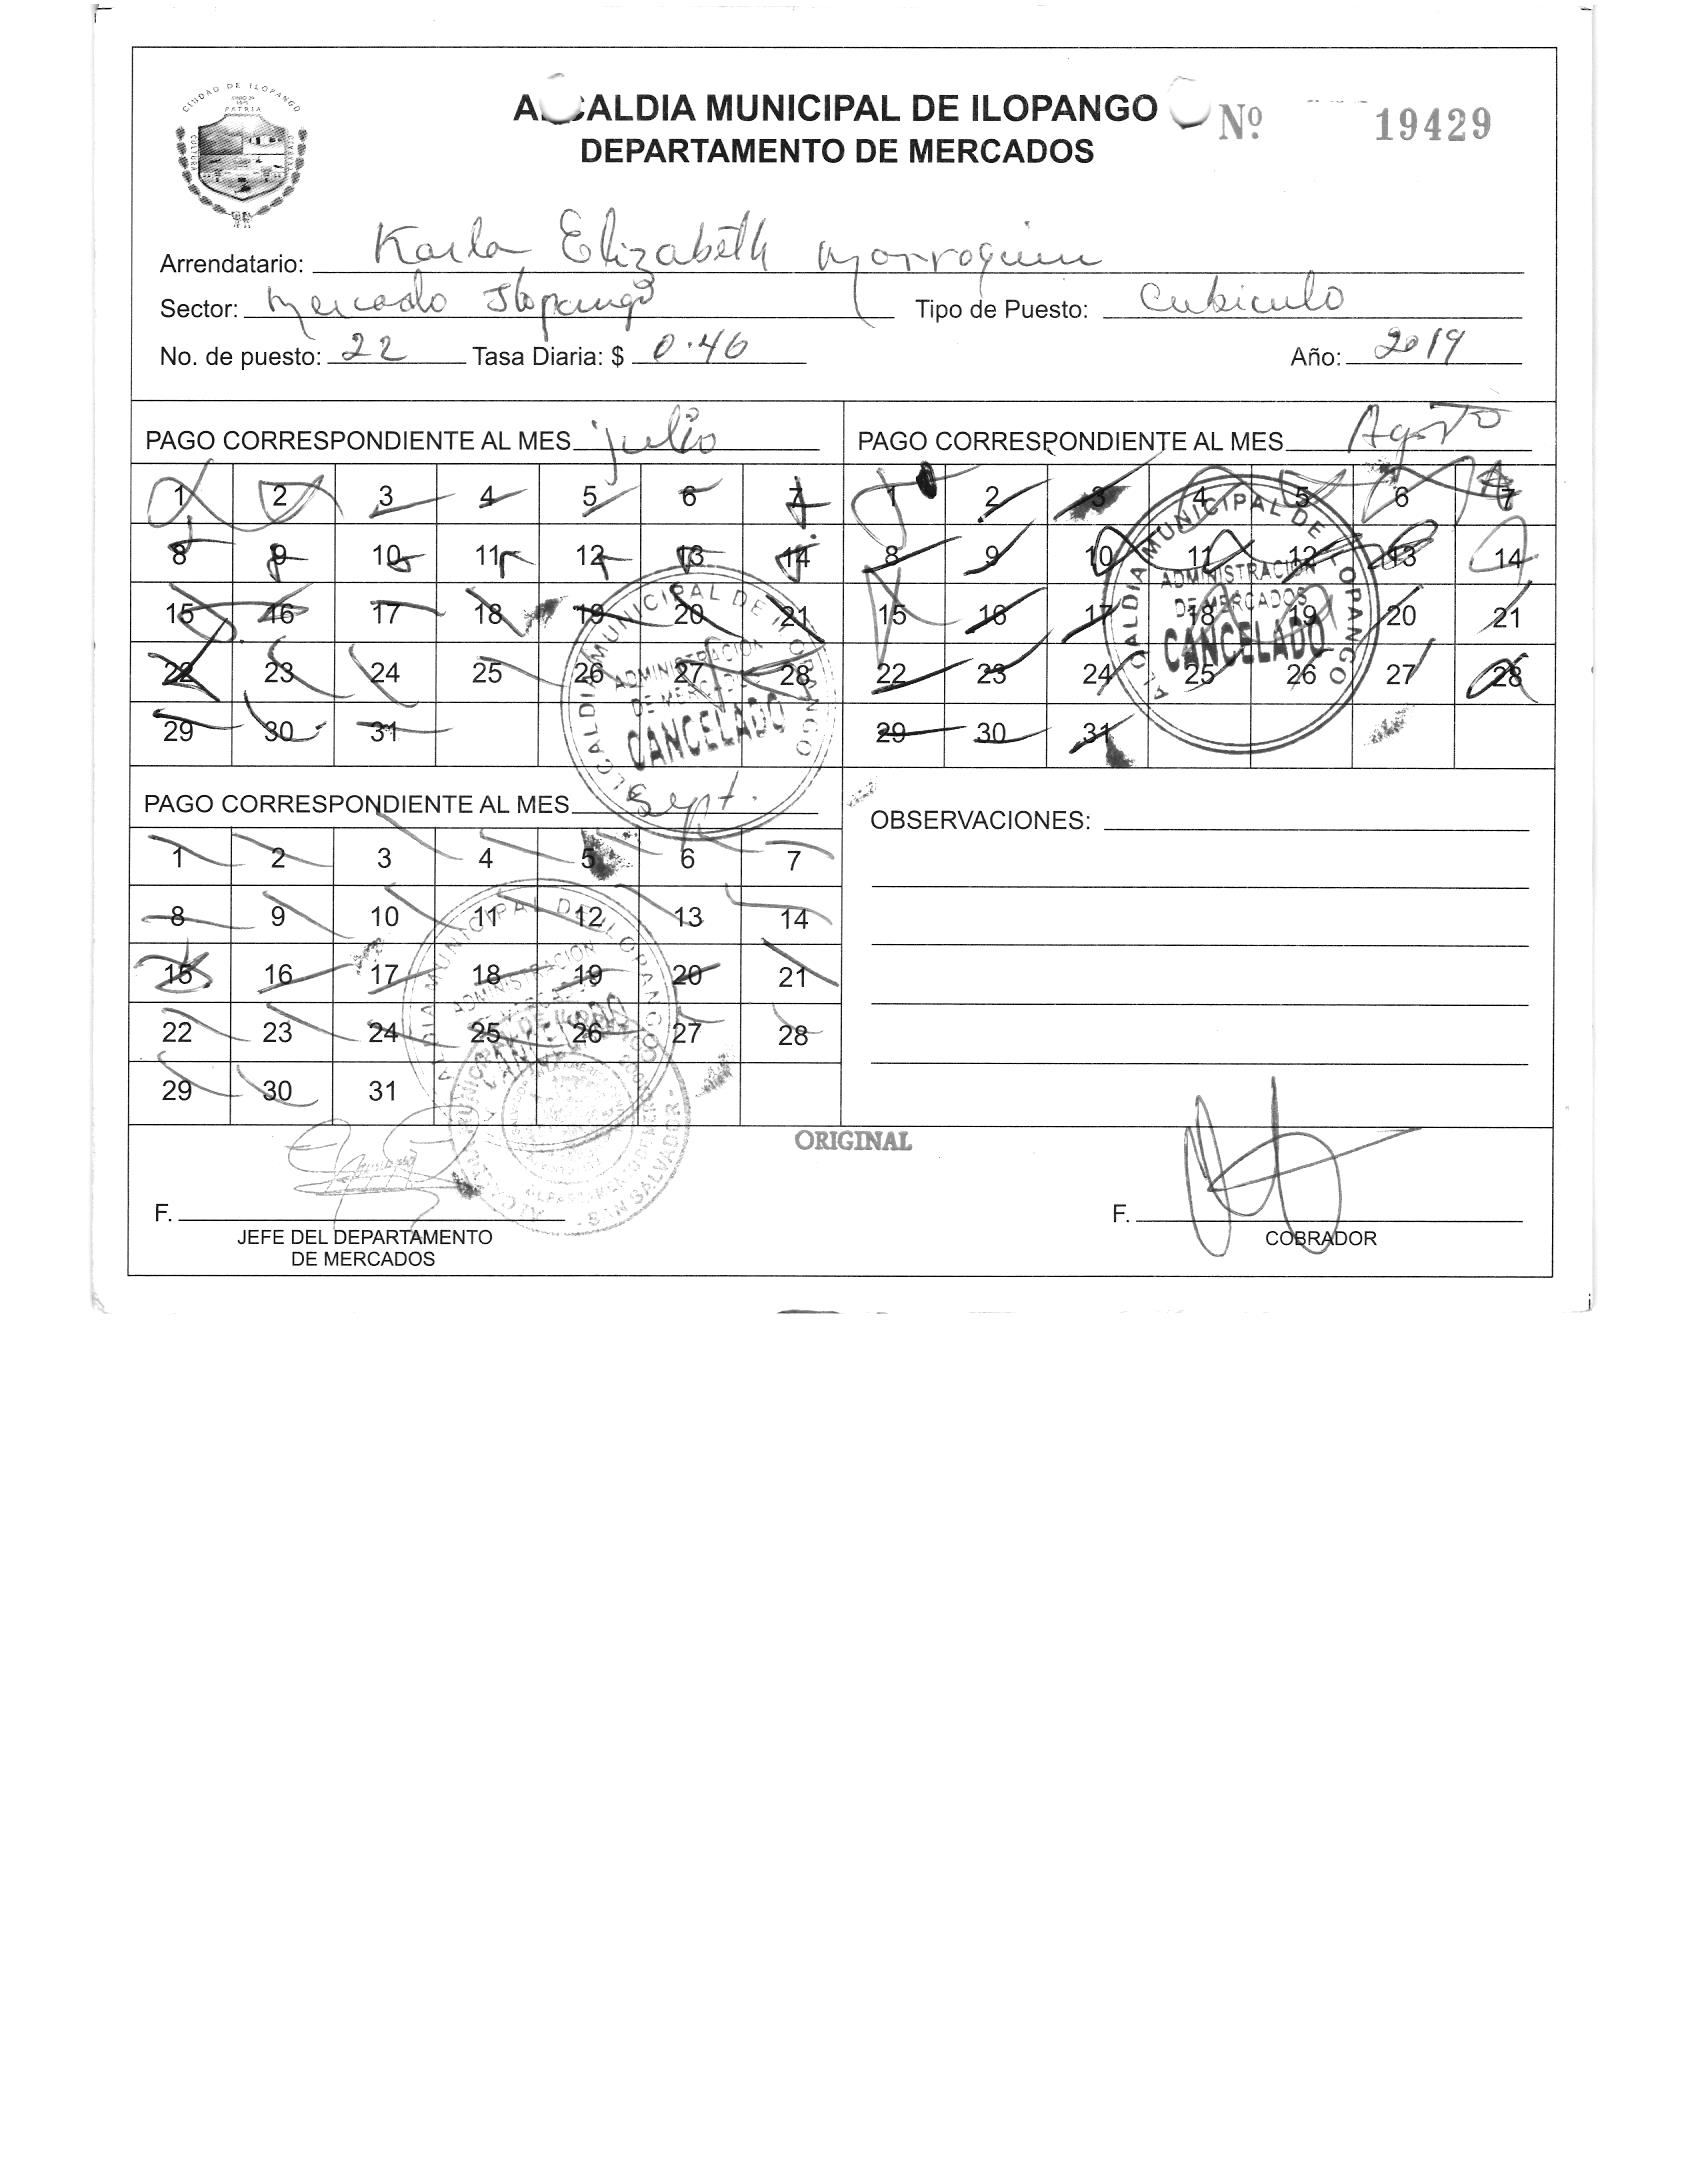 CIUDAD DE ILOPANGO
PATRIA
CULTURA
ALCALDIA MUNICIPAL DE ILOPANGO
Nº 19429
DEPARTAMENTO DE MERCADOS
Arrendatario: Karla Elizabeth Marroquin
Sector: Mercado Ilopango Tipo de Puesto: Cubiculo
No. de puesto: 22 Tasa Diaria: $ 0.46 Año: 2019
PAGO CORRESPONDIENTE AL MES julio
1 2 3 4 5 6 7
8 9 10 11 12 13 14
15 16 17 18 19 20 21
22 23 24 25 26 27 28
29 30 31
ALCALDIA MUNICIPAL DE ILOPANGO
ADMINISTRACION
DE MERCADOS
CANCELADO
PAGO CORRESPONDIENTE AL MES Agosto
1 2 3 4 5 6 7
8 9 10 11 12 13 14
15 16 17 18 19 20 21
22 23 24 25 26 27 28
29 30 31
ALCALDIA MUNICIPAL DE ILOPANGO
ADMINISTRACION
DE MERCADOS
CANCELADO
PAGO CORRESPONDIENTE AL MES Sept.
1 2 3 4 5 6 7
8 9 10 11 12 13 14
15 16 17 18 19 20 21
22 23 24 25 26 27 28
29 30 31
ALCALDIA MUNICIPAL DE ILOPANGO
ADMINISTRACION
CANCELADO
SAN SALVADOR
OBSERVACIONES:
ORIGINAL
F.
JEFE DEL DEPARTAMENTO
DE MERCADOS
F.
COBRADOR